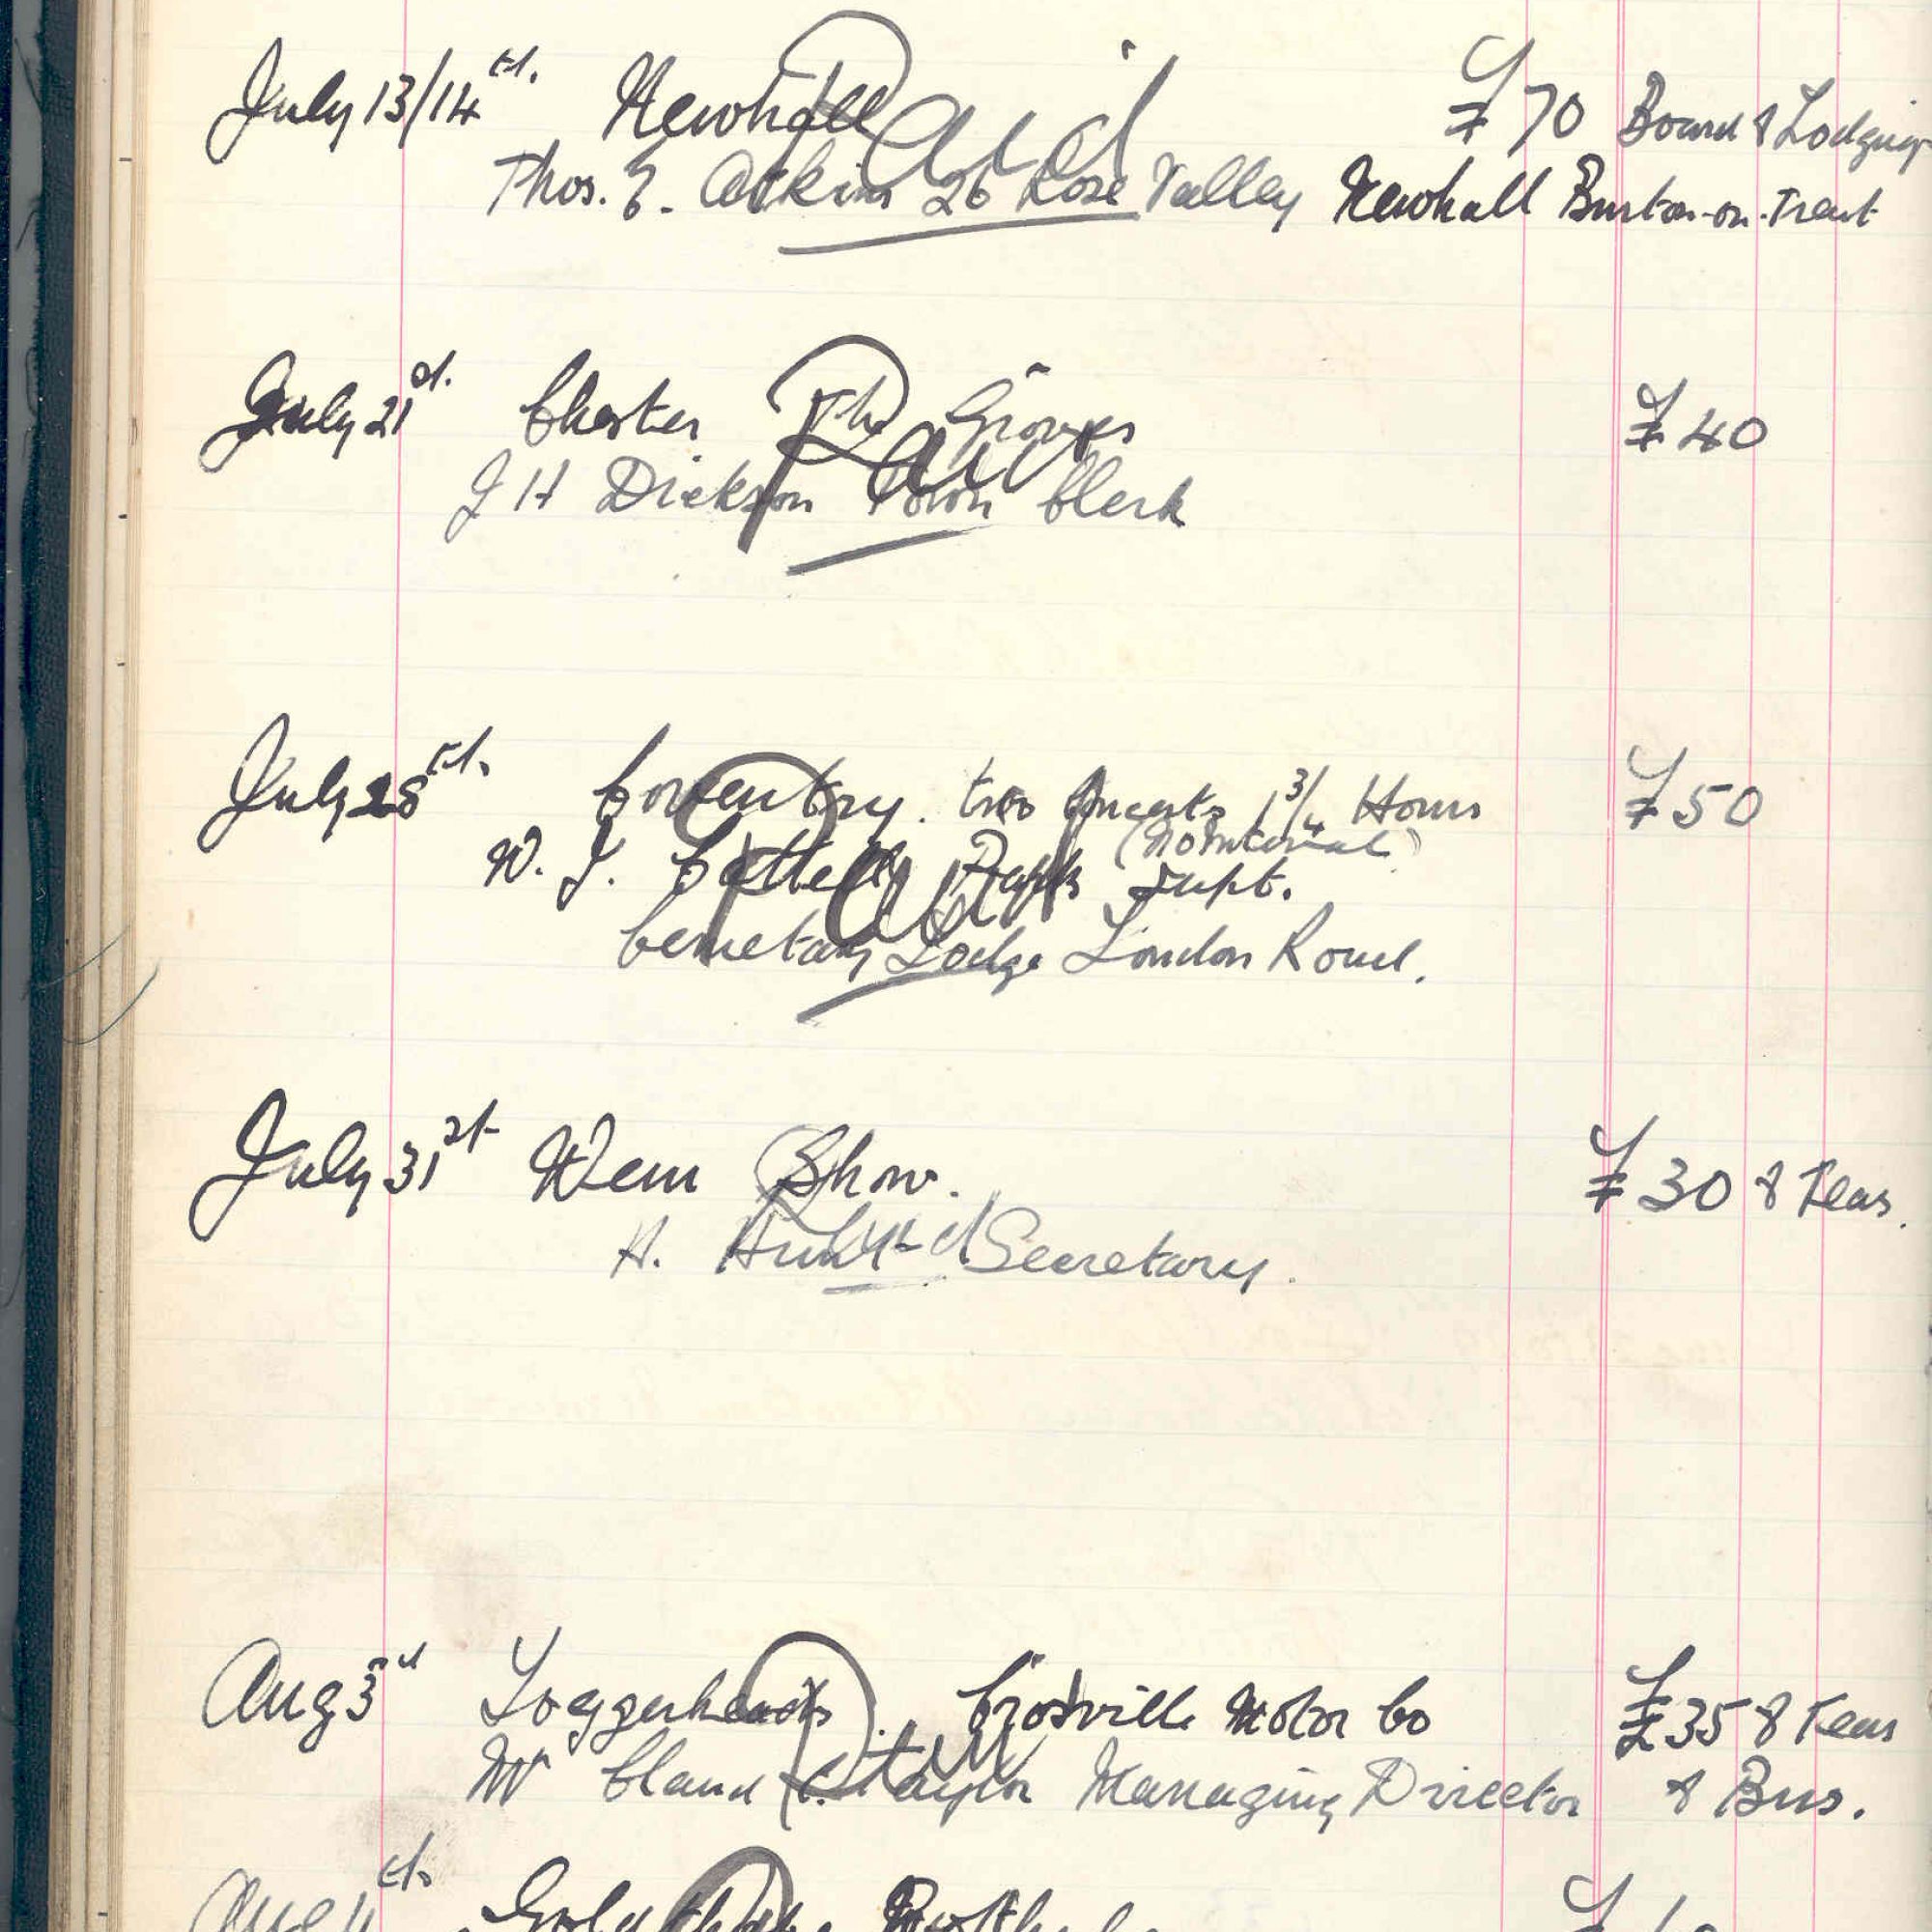 July 13/14th. Newhall £70 Board & Lodging
Thos. E. Atkins 26 Rose Valley Newhall Burton-on-Trent
Paid
July 21st. Chester The Groves £40
J H Dickson Town Clerk
Paid
July 28th. Coventry. two Concerts 1 3/4 Hours £50
(No Interval)
W. J. Cattell Parks Supt.
Cemetary Lodge London Road.
Paid
July 31st Wem Show. £30 & Teas.
H. Secretary.
Paid
Aug 3rd Loggerheads. Crosville Motor Co £35 & Teas
Mr Claud C. Taylor Managing Director & Bus.
Paid
Aug 11th.